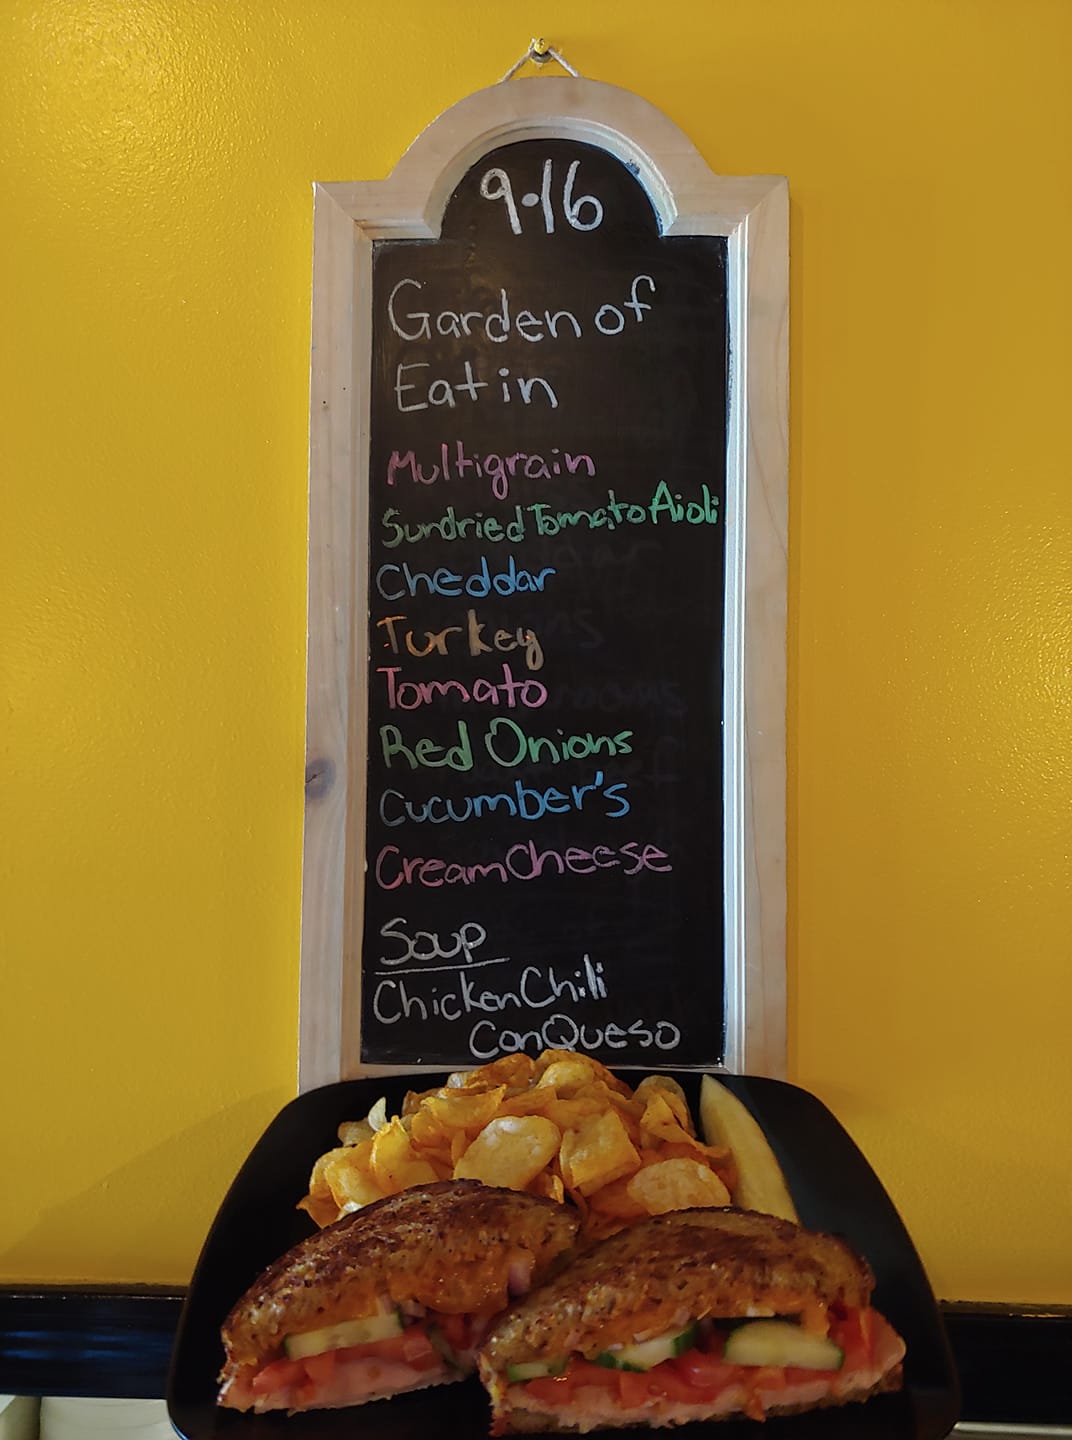 9·16
Garden of
Eatin
Multigrain
Sundried Tomato Aioli
Cheddar
Turkey
Tomato
Red Onions
Cucumber's
Cream Cheese
Soup
Chicken Chili
Con Queso